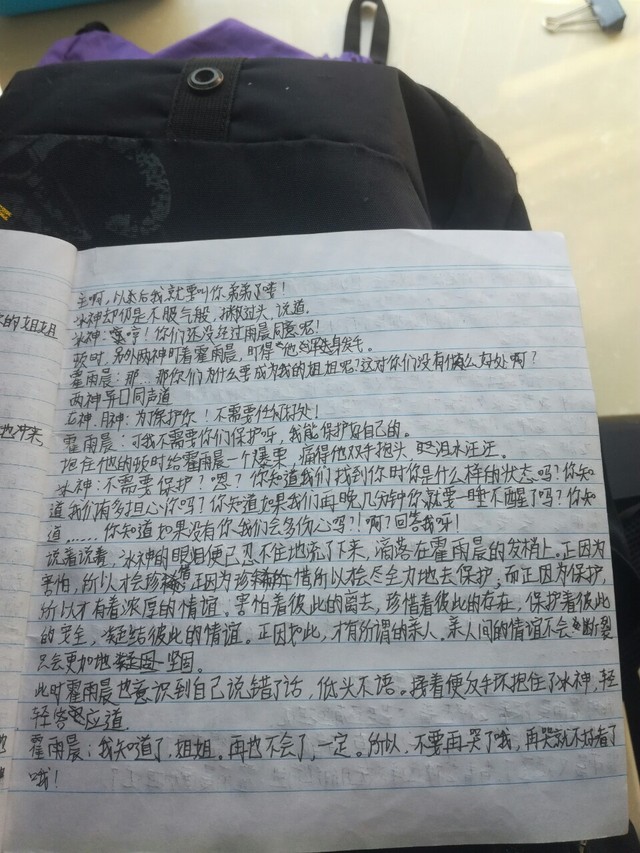 的姐姐
也冲来
主啊，以后我就要叫你弟弟了喽！
冰神却仍是不服气般，撇过头，说道。
冰神：哼！你们还没经过雨晨同意呢！
顿时，另外两神盯着霍雨晨，盯得他浑身发毛。
霍雨晨：那…那你们为什么要成为我的姐姐呢？这对你们没有什么好处啊？
两神异口同声道
月神：为了保护你！不需要任何好处！
霍雨晨：可我不需要你们保护呀，我能保护好自己的。
抱住他的顿时给霍雨晨一个爆栗，痛得他双手抱头，泪水汪汪。
冰神：不需要保护？嗯？你知道我们找到你时你是什么样的状态吗？你知
道我们有多担心你吗？你知道如果我们再晚几分钟你就要一睡不醒了吗？你知
道……你知道如果没有你我们会多伤心吗？！啊？回答我呀！
说着说着，冰神的眼泪便已忍不住地流了下来，滴落在霍雨晨的发梢上。正因为
害怕，所以才会珍惜；正因为珍惜所以才会尽全力地去保护；而正因为保护，
所以才有着浓厚的情谊。害怕着彼此的离去，珍惜着彼此的存在，保护着彼此
的安全，凝结彼此的情谊。正因如此，才有所谓的亲人。亲人间的情谊不会断裂
只会更加地坚固。
此时霍雨晨也意识到自己说错了话，低头不语。接着便反手环抱住了冰神，轻
轻答应道。
霍雨晨：我知道了，姐姐。再也不会了，一定。所以，不要再哭了哦，再哭就不好看了
哦！